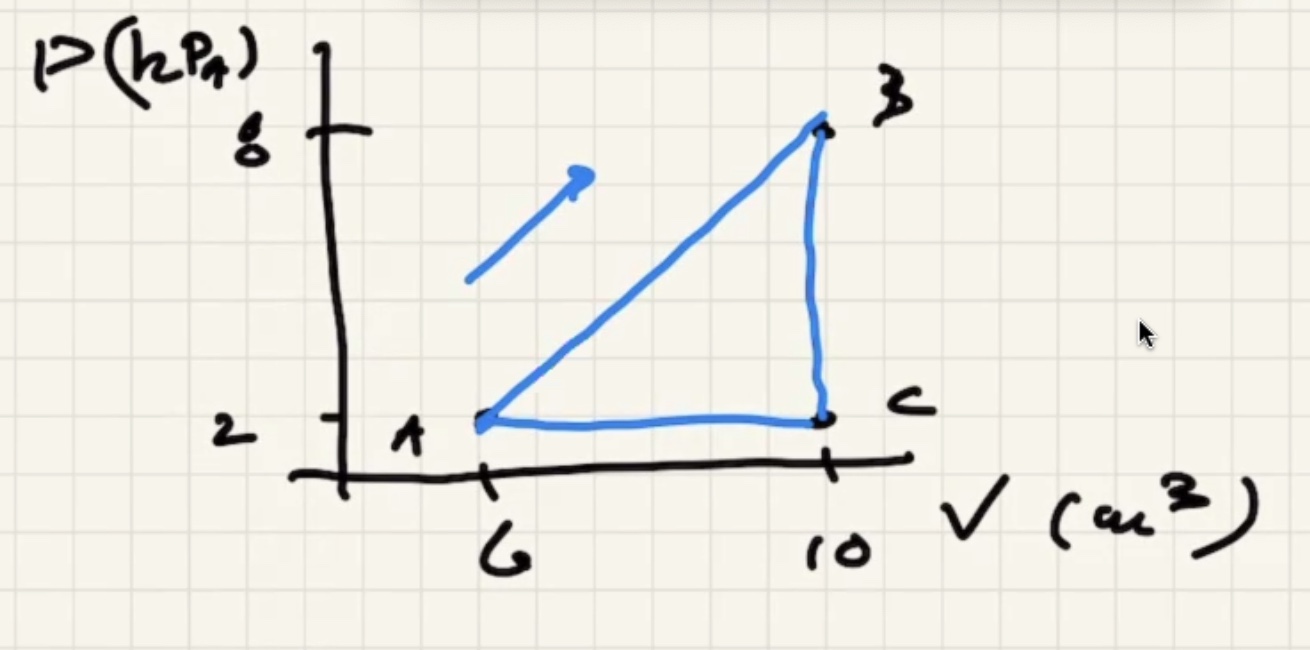 P (kPa)
8
B
2
A
C
6
10
V (cm³)